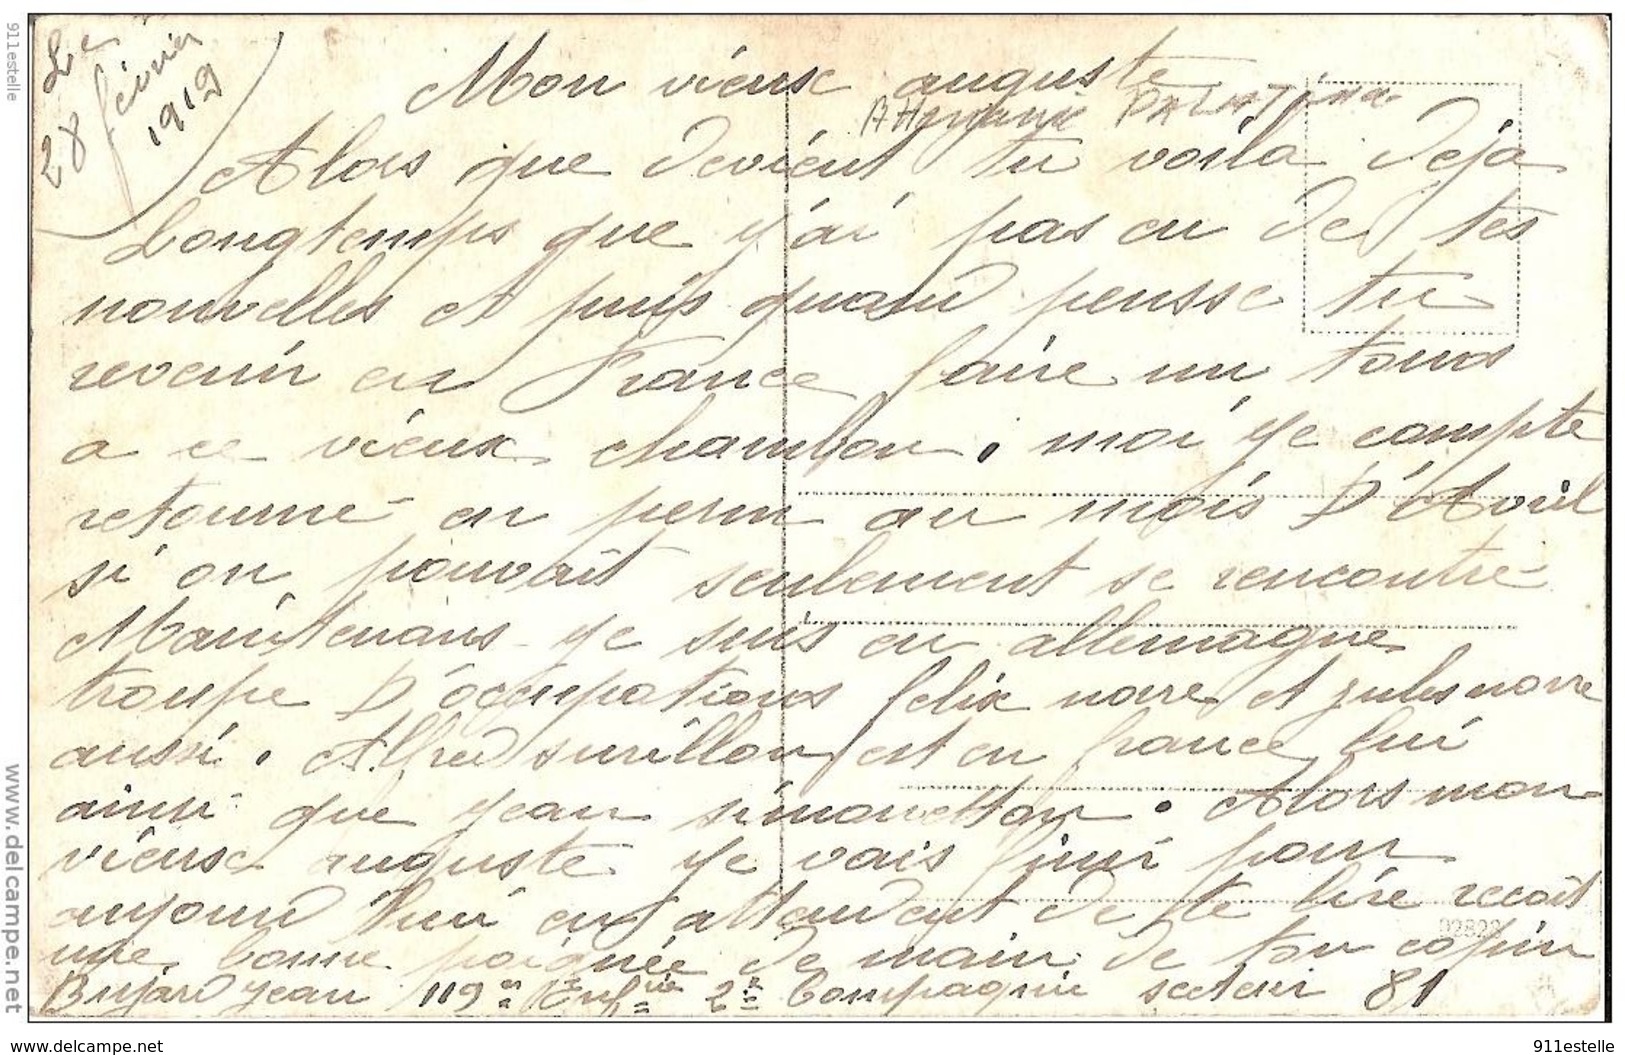 Le
28 février
1919
Mon vieux auguste
Alors que devient tu voila deja
Longtemps que j'ai pas eu de tes
nouvelles et puis quand pensse tu
revenir en France faire un tours
a ce vieux chambon. moi je compte
retourné en perm au mois D'Avril
si on pouvait seulement se rencontré
Maintenans je suis en allemagne
troupe D'occupations felix noire et jules noire
aussi. Alfred surillon est en france lui
ainsi que jean simonetton. Alors mon
vieux auguste je vais finir pour
aujourd'hui en attendent de te lire recoit
une bonne poignée de main de ton copin
Bujard jean 119e 2e Compagnie secteur 81
911estelle
www.delcampe.net
www.delcampe.net
911estelle